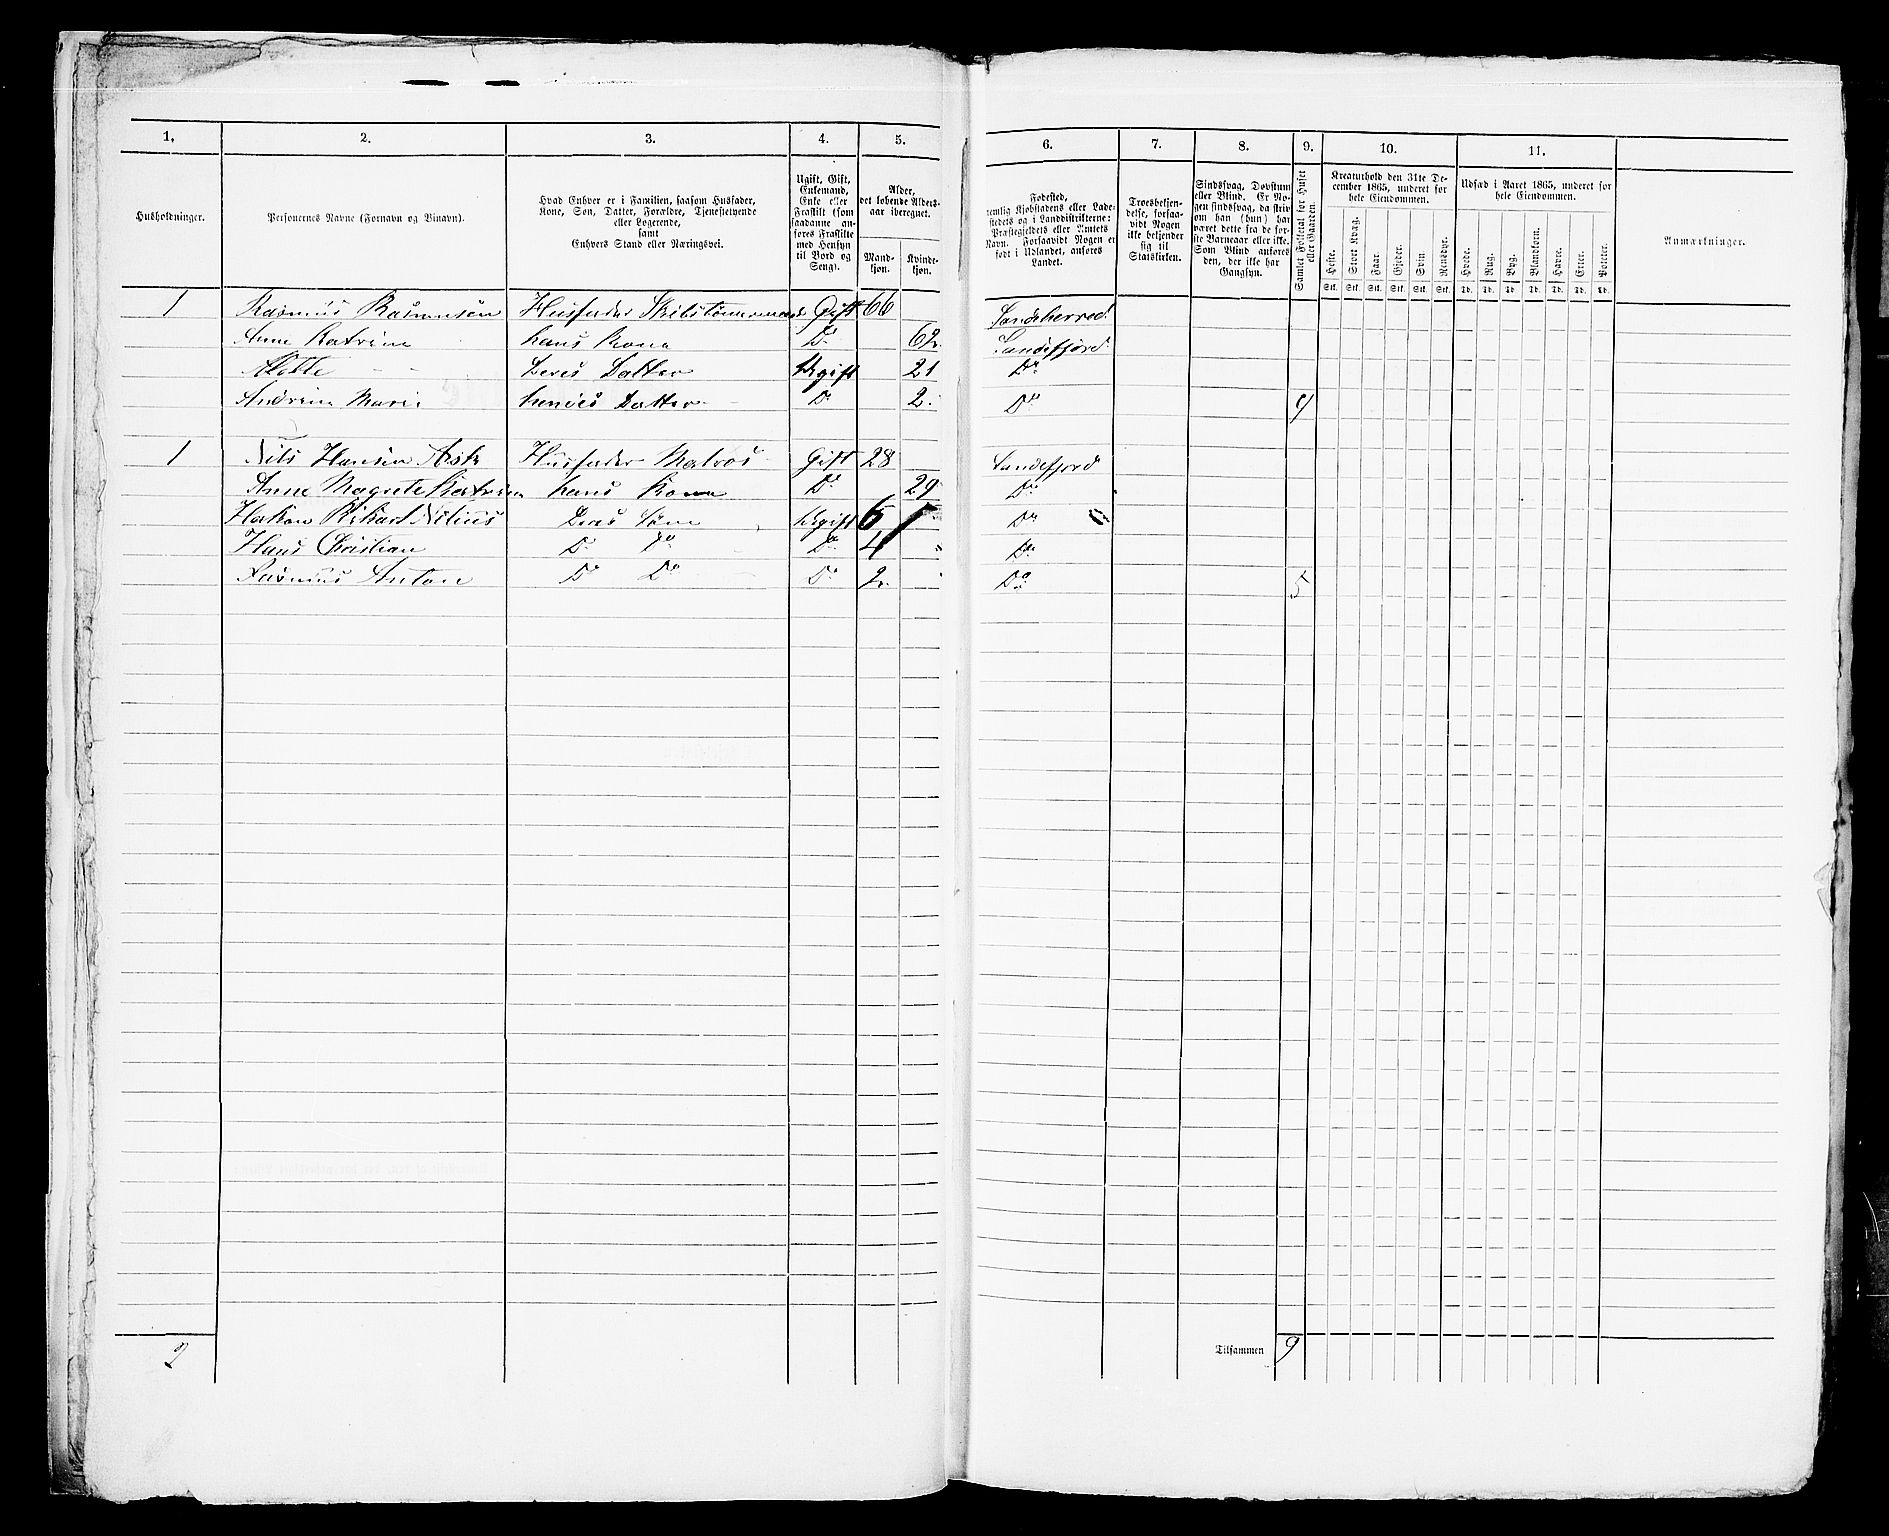 1. 2. 3. 4. 5. 6. 7. 8. 9. 10. 11.
Husholdninger.
Personernes Navne (Fornavn og Binavn).
Hvad Enhver er i Familien, saasom Husfader,
Kone, Søn, Datter, Forældre, Tjenestetyende
eller Logerende,
samt
Enhvers Stand eller Næringsvei.
Ugift, Gift,
Enkemand,
Enke eller
Fraskilt (som
saadanne an-
føres Fraskilte
med Hensyn
til Bord og
Seng).
Alder,
det løbende Alders-
aar iberegnet.
Mand-
kjøn.
Kvinde-
kjøn.
Fødested,
nemlig Kjøbstadens eller Lade-
stedets og i Landdistrikterne:
Præstegjeldets eller Amtets
Navn. Forsaavidt Nogen er
født i Udlandet, anføres
Landet.
Troesbekjen-
delse, forsaa-
vidt Nogen
ikke bekjender
sig til
Statskirken.
Sindssvag, Døvstum
eller Blind. Er No-
gen sindssvag, da skriv
om han (hun) har
været dette fra de før-
ste Barneaar eller ikke.
Som Blind anføres
den, der ikke har
Gangsyn.
Samlet Folketal for Huset
eller Gaarden.
Kreaturhold den 31te De-
cember 1865, underet for
hele Eiendommen.
Heste. Stort Kvæg. Faar. Gjeder. Svin. Rensdyr.
Stk. Stk. Stk. Stk. Stk. Stk.
Udsæd i Aaret 1865, underet for
hele Eiendommen.
Hvede. Rug. Byg. Blandkorn. Havre. Erter. Poteter.
Td. Td. Td. Td. Td. Td. Td.
Anmærkninger.
1 Rasmus Rasmusen Husfader Skibstømmermand Gift 66 Sandeherred
Anne Katrine hans Kone Do 62 Sandefjord
Deres Datter Ugift 21 Do
Andrine Marie hendes Datter Do 2 Do 4
1 Nils Hansen Husfader Matros Gift 28 Sandefjord
Anne Magrete Katrine hans Kone Do 29 Do
Hakon Rikart Nilius Deres Søne Ugift 6 Do
Hans Christian Do Do Do 4 Do
Rasmus Anton Do Do Do 2 Do 5
2 Tilsammen 9